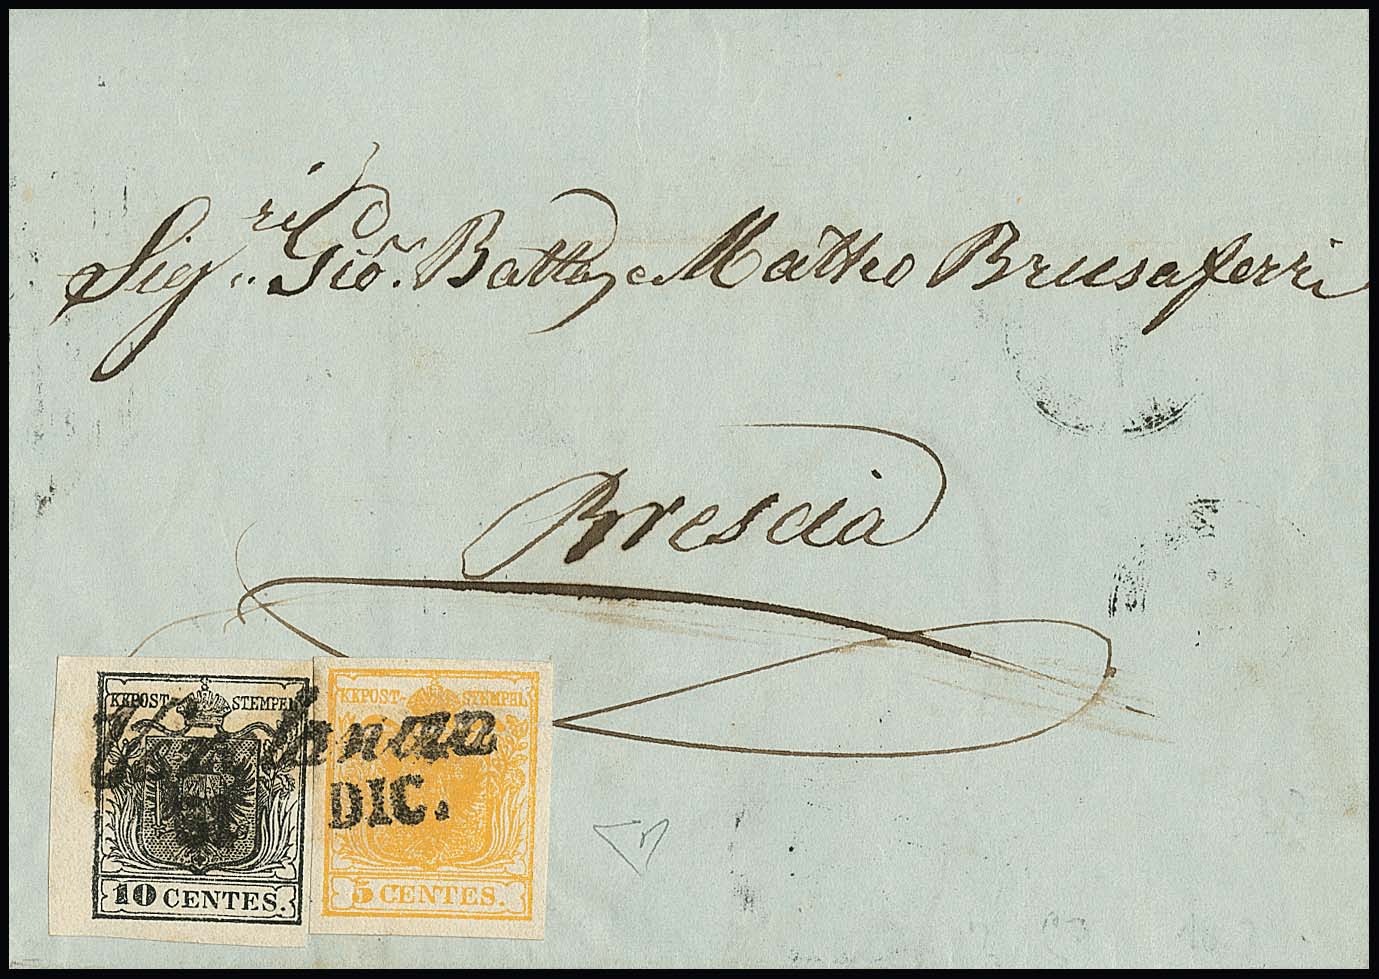 Sig.ri Gio. Batta e Matteo Brusaferri
Brescia
KKPOST-STEMPEL
10 CENTES.
KKPOST-STEMPEL
5 CENTES.
DIC.